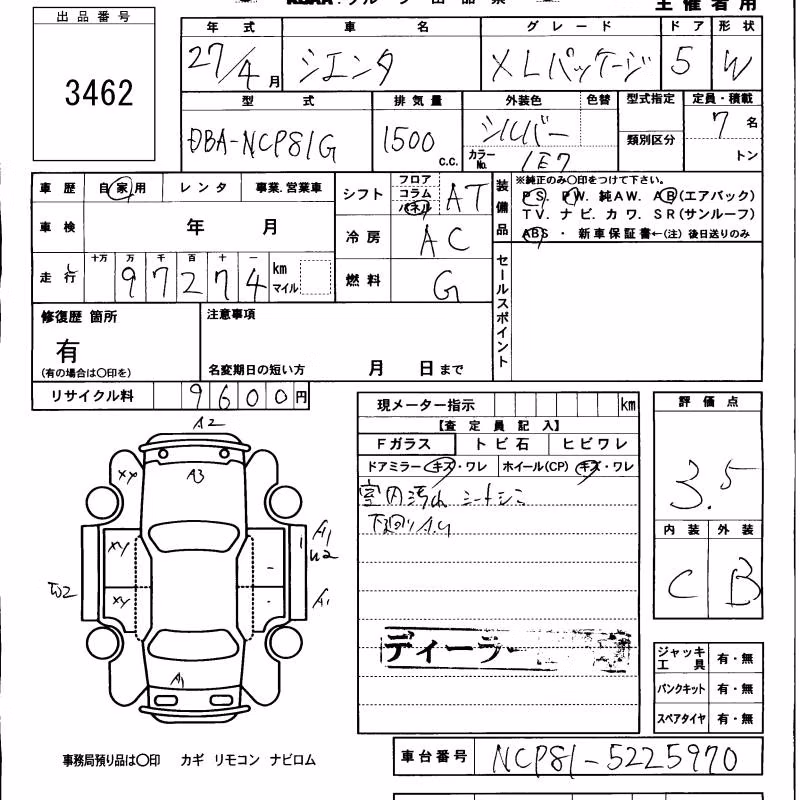 主催者用
出品番号
3462
年式 車名 グレード ドア 形状
27/4月 シエンタ XLパッケージ 5 W
型式 排気量 外装色 色替 型式指定 定員・積載
DBA-NCP81G 1500 c.c. シルバー 類別区分 7名
カラーNo. 1E7 トン
車歴 自家用 レンタ 事業.営業車
シフト フロア コラム パネル AT
装備品 ※純正のみ○印をつけて下さい。
PS. PW. 純AW. AB(エアバック)
TV. ナビ. カワ. SR(サンルーフ)
ABS・新車保証書←(注)後日送りのみ
車検 年 月
冷房 AC
走行 十万 万 千 百 十 一
97274 km マイル
燃料 G
セールスポイント
修復歴 箇所 注意事項
有
(有の場合は○印を) 名変期日の短い方 月 日まで
リサイクル料 9600円
現メーター指示 km
評価点
【査定員記入】
Fガラス トビ石 ヒビワレ
ドアミラー キズ・ワレ ホイール(CP) キズ・ワレ
室内汚れ シートシミ
下廻り
3.5
内装 外装
C B
A2
XP A3
XY A1
U2
XY A1
A1
ディーラー
ジャッキ工具 有・無
パンクキット 有・無
スペアタイヤ 有・無
事務局預り品は○印 カギ リモコン ナビロム
車台番号 NCP81-5225970